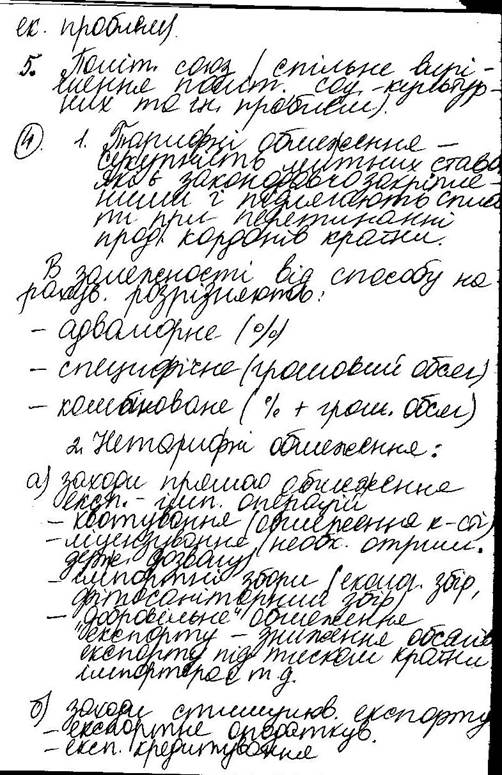 ек. проблем)
5. Політ. союз (спільне вирі-
шення політ. соц.-культур-
них та ін. проблем).
④ 1. Тарифні обмеження –
сукупність митних став
які є законодавчо закріпле-
ними і підлягають спла
ти при перетинанні
прод. кордонів країни.
В залежності від способу на-
рахув. розрізняють:
– адвалорне (%)
– специфічне (грошовий обсяг)
– комбіноване (% + грош. обсяг)
2. Нетарифні обмеження:
а) заходи прямого обмеження
експ.-імп. операцій
– квотування (обмеження к-сті)
– ліцензування (необх. отрим.
держ. дозволу)
– імпортні збори (еколог. збір,
фітосанітарний збір)
– "добровільне" обмеження
експорту – зниження обсягів
експорту під тиском країни
імпортера і т.д.
б) заходи стимулюв. експорту
– експортне оподаткув.
– експ. кредитування